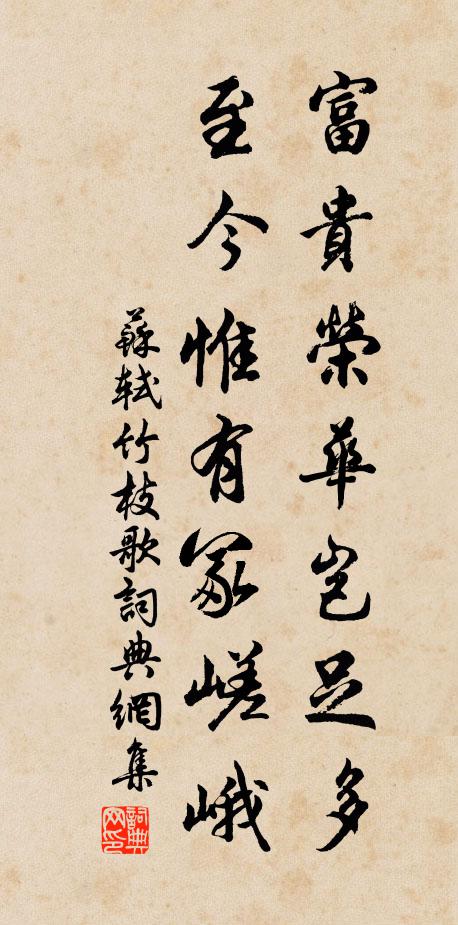 富貴榮華岂足多
至今惟有冢嵯峨
蘇軾竹枝歌詞典網集
詞典網印